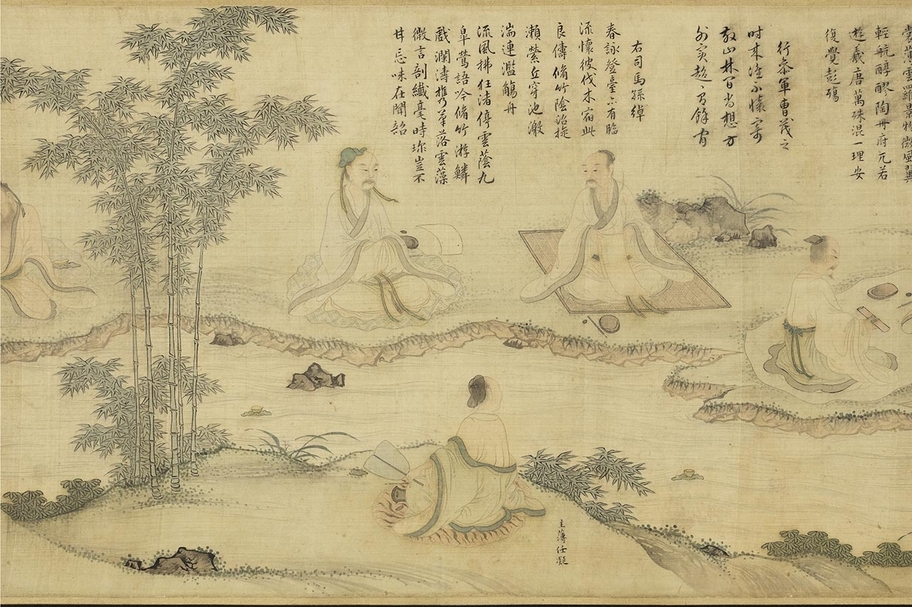 輕航醇醪陶丹府兀若
遊羲唐萬殊混一理安
復覺彭殤
行參軍曹茂之
時來誰不懷寄
散山林間尚想方
外賓超々有餘
右司馬孫綽
春詠登臺亦有臨
流懷彼伐木宿此
良儔脩竹陰沼旋
瀨縈丘穿池激
湍連濫觴舟
流風拂枉渚停雲蔭九
皋鶯語吟脩竹游鱗
戲瀾濤攜筆落雲藻
微言剖纖毫時珍豈不
甘忘味在聞韶
主簿任凝